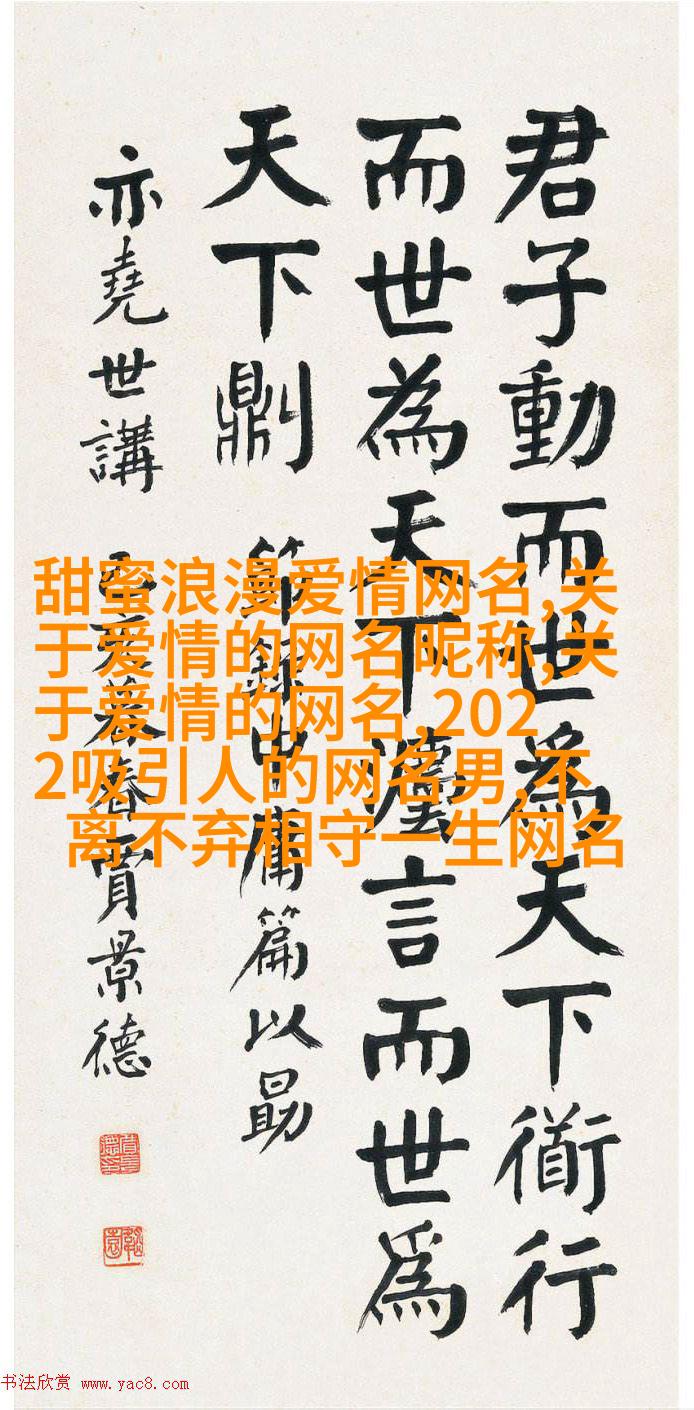 君子動而世為天下衜行
而世為天下灋言而世為
天下則 節錄中庸篇以勗
亦堯世講 暮春賈景德
甜蜜浪漫爱情网名,关
于爱情的网名昵称,关
于爱情的网名,202
2吸引人的网名男,不
离不弃相守一生网名
书法欣赏 www.yac8.com